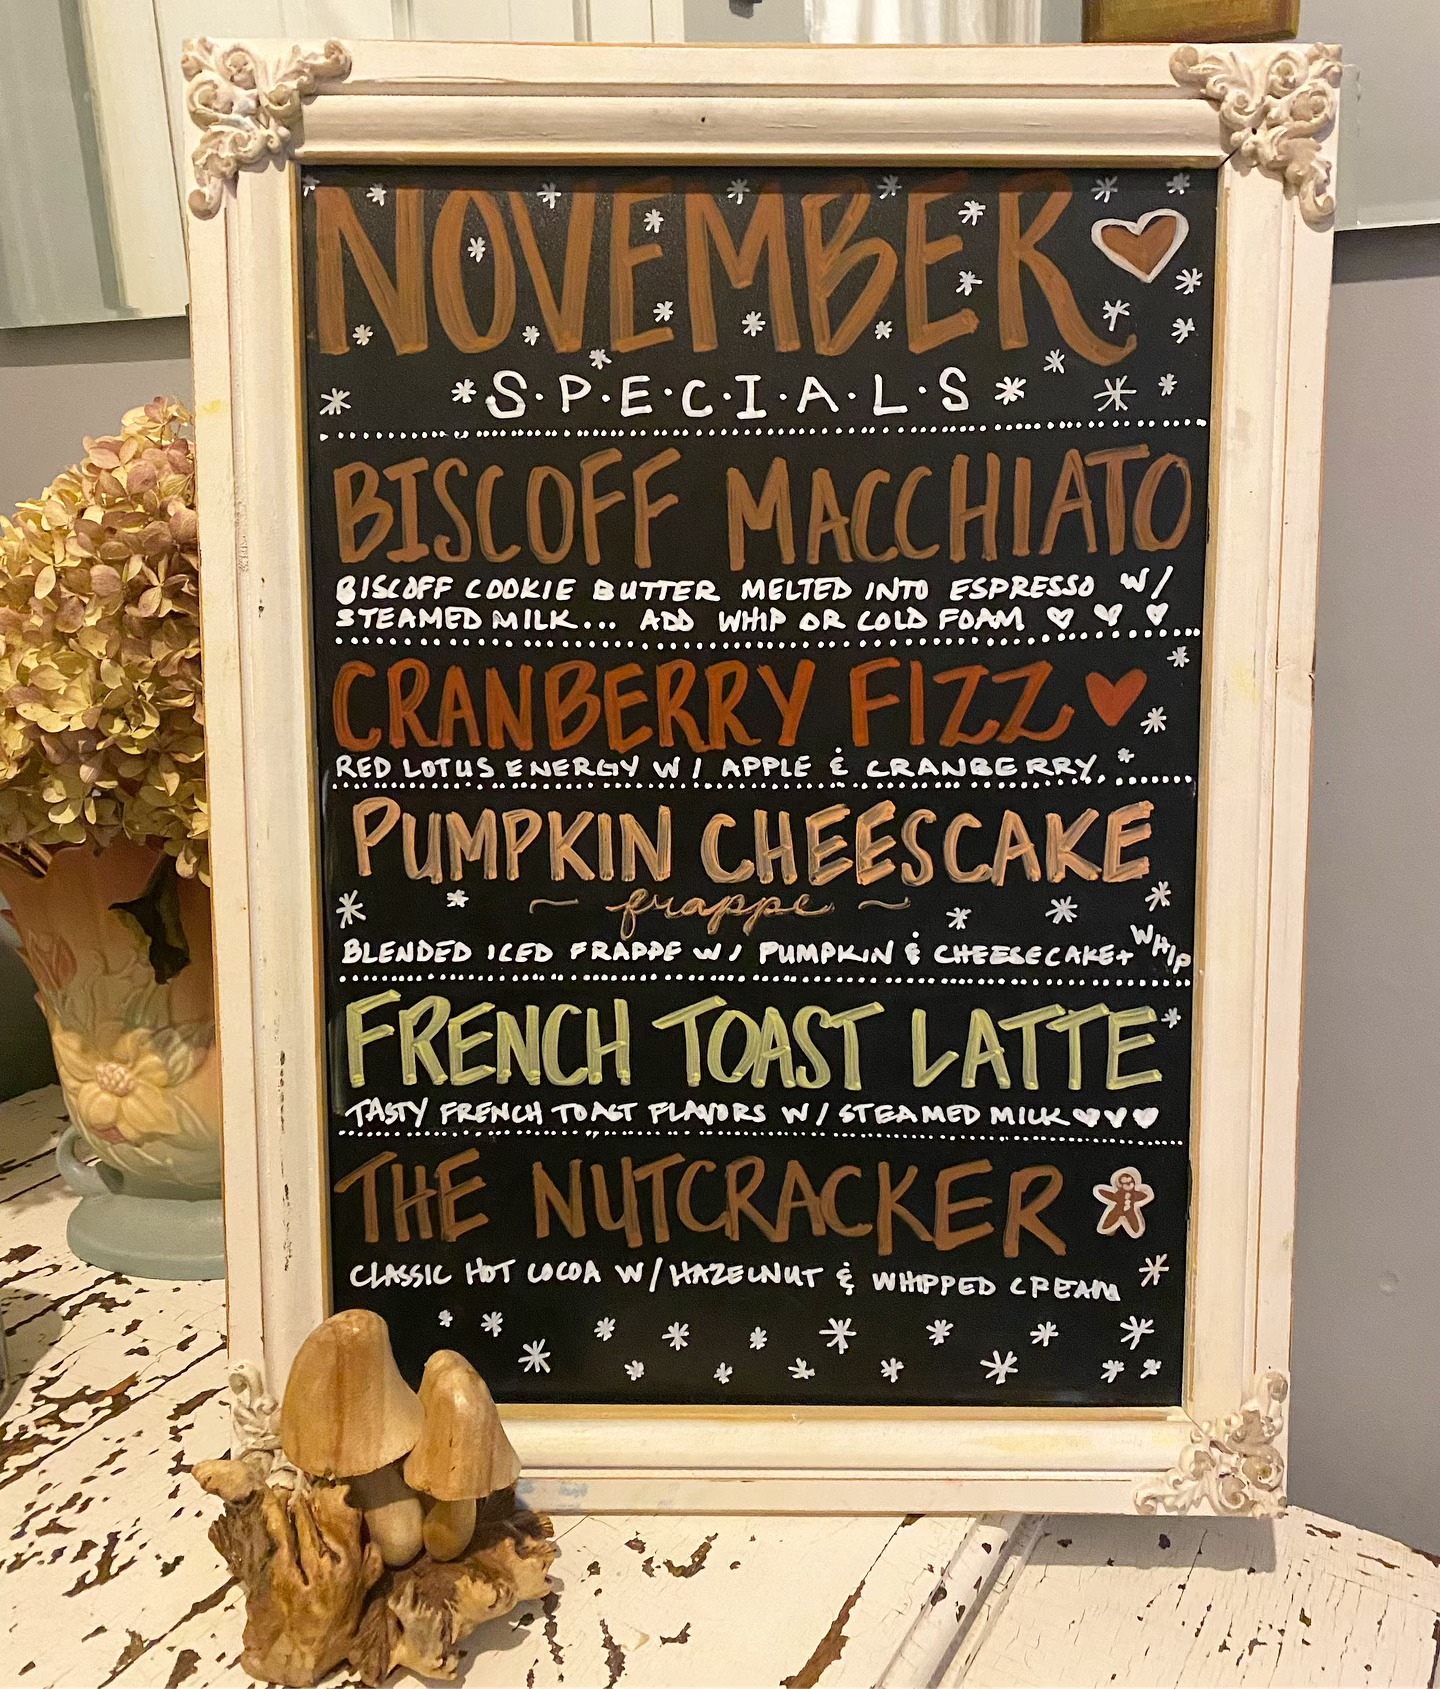 NOVEMBER
S·P·E·C·I·A·L·S
BISCOFF MACCHIATO
BISCOFF COOKIE BUTTER MELTED INTO ESPRESSO W/
STEAMED MILK... ADD WHIP OR COLD FOAM
CRANBERRY FIZZ
RED LOTUS ENERGY W/ APPLE & CRANBERRY.
PUMPKIN CHEESECAKE
~ frappe ~
BLENDED ICED FRAPPE W/ PUMPKIN & CHEESECAKE+ WHIP
FRENCH TOAST LATTE
TASTY FRENCH TOAST FLAVORS W/ STEAMED MILK
THE NUTCRACKER
CLASSIC HOT COCOA W/ HAZELNUT & WHIPPED CREAM